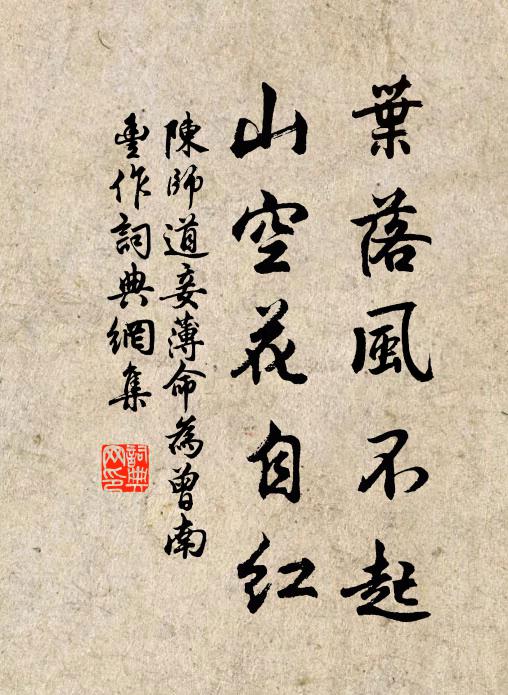 葉落風不起
山空花自紅
陳師道妾薄命為曾南
豐作詞典網集
詞典
网印